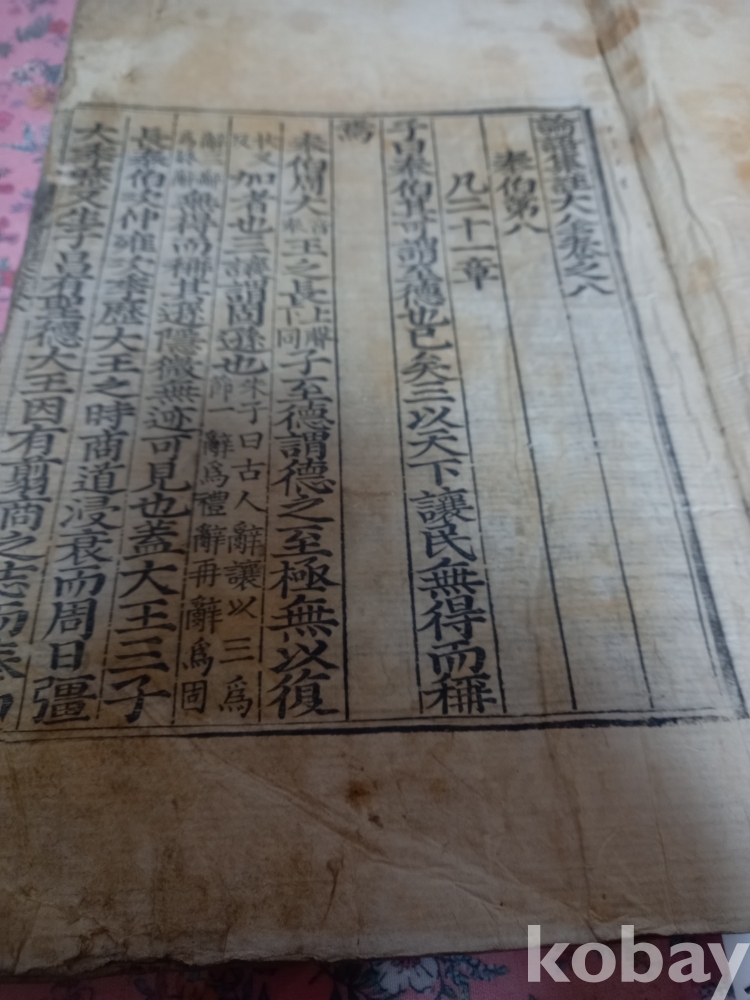 論語集註大全卷之八
泰伯第八
凡二十一章
子曰泰伯其可謂至德也已矣三以天下讓民無得而稱
焉
泰伯周大王之長上聲下同子至德謂德之至極無以復
扶又反加者也三讓謂固遜也朱子曰古人辭讓以三爲節一辭爲禮辭再辭爲固
辭三辭爲終辭無得而稱其遜隱微無迹可見也蓋大王三子
長泰伯次仲雍次季歷大王之時商道浸衰而周日彊
大季歷又生子昌有聖德大王因有翦商之志而泰伯
kobay